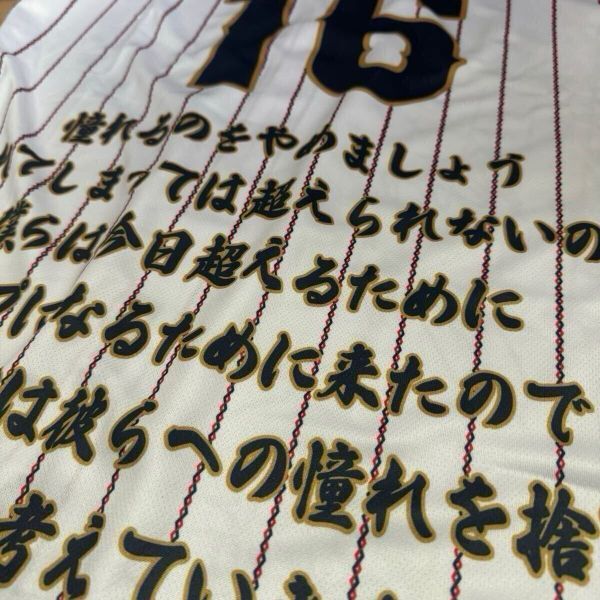 16
憧れるのをやめましょう
てしまっては超えられないの
僕らは今日超えるために
プになるために来たので
は彼らへの憧れを捨
考えてい